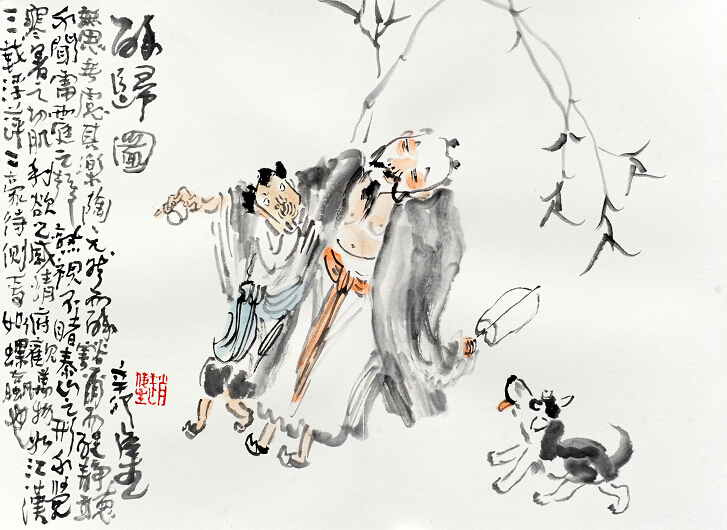 醉歸圖
無思無慮其樂陶兀然而醉豁爾而醒靜聽
不聞雷霆之聲熟視不睹泰山之形不覺
寒暑之切肌利欲之感情俯觀萬物如江漢
之載浮萍二豪侍側焉如螺蠃也
辛卯